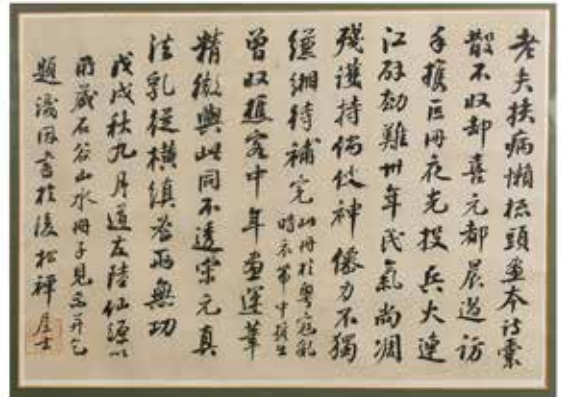 老夫扶病懶梳頭畫本詩囊
散不收却喜元都晨過訪
手攜巨冊夜光投兵火連
江劫難卅年民氣尚凋
殘護持倘仗神僊力不獨
縑緗待補完此冊於粵寇亂
時衣帶中携出
曾收客中年畫運筆
精微與此同不透宋元真
法乳從橫縝密兩無功
戊戌秋九月道友陸仙源以
所藏石谷山水冊子見示并乞
題識因書於後松禪居士